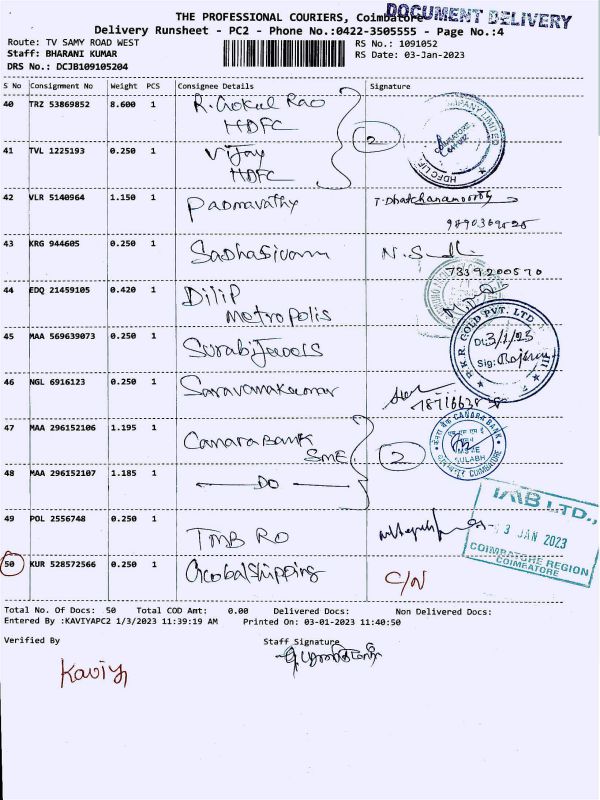 THE PROFESSIONAL COURIERS, Coimbatore
DOCUMENT DELIVERY
Delivery Runsheet - PC2 - Phone No.:0422-3505555 - Page No.:4
Route: TV SAMY ROAD WEST
RS No.: 1091052
Staff: BHARANI KUMAR
RS Date: 03-Jan-2023
DRS No.: DCJB109105204
S No Consignment No Weight PCS Consignee Details Signature
40 TRZ 53869852 8.600 1 R. Gokul Rao
HDFC
2
HDFC LIFE
41 TVL 1225193 0.250 1 Vijay
HDFC
42 VLR 5140964 1.150 1 Padmavathy
43 KRG 944605 0.250 1 Sadhasivam
7339200570
44 EDQ 21459105 0.420 1 Dilip
Metropolis
R.K.R. GOLD PVT. LTD
Dt: 3/1/23
Sig:
45 MAA 569639073 0.250 1 Surabi Jewels
46 NGL 6916123 0.250 1 Saravanakumar
47 MAA 296152106 1.195 1 Canara Bank
SME
2
CANARA BANK
SULABH
COIMBATORE
48 MAA 296152107 1.185 1 DO
49 POL 2556748 0.250 1 TMB RO
TMB LTD.,
3 JAN 2023
COIMBATORE REGION
COIMBATORE
50 KUR 528572566 0.250 1 Global Shipping C/N
Total No. Of Docs: 50 Total COD Amt: 0.00 Delivered Docs: Non Delivered Docs:
Entered By :KAVIYAPC2 1/3/2023 11:39:19 AM Printed On: 03-01-2023 11:40:50
Verified By Staff Signature
Kaviya